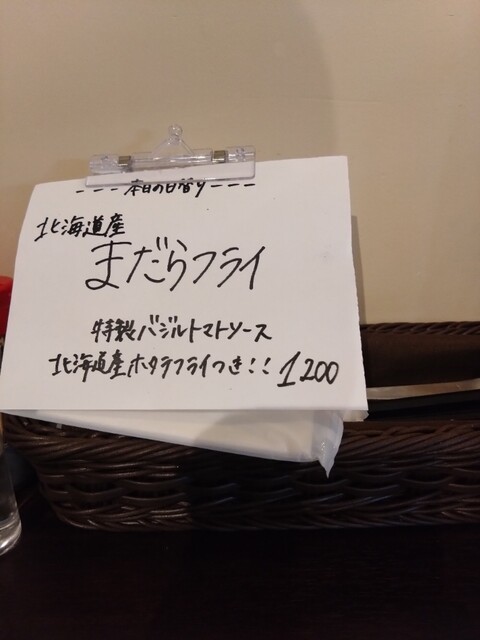 ---本日の日替り---
北海道産
まだらフライ
特製バジルトマトソース
北海道産ホタテフライつき!! 1200